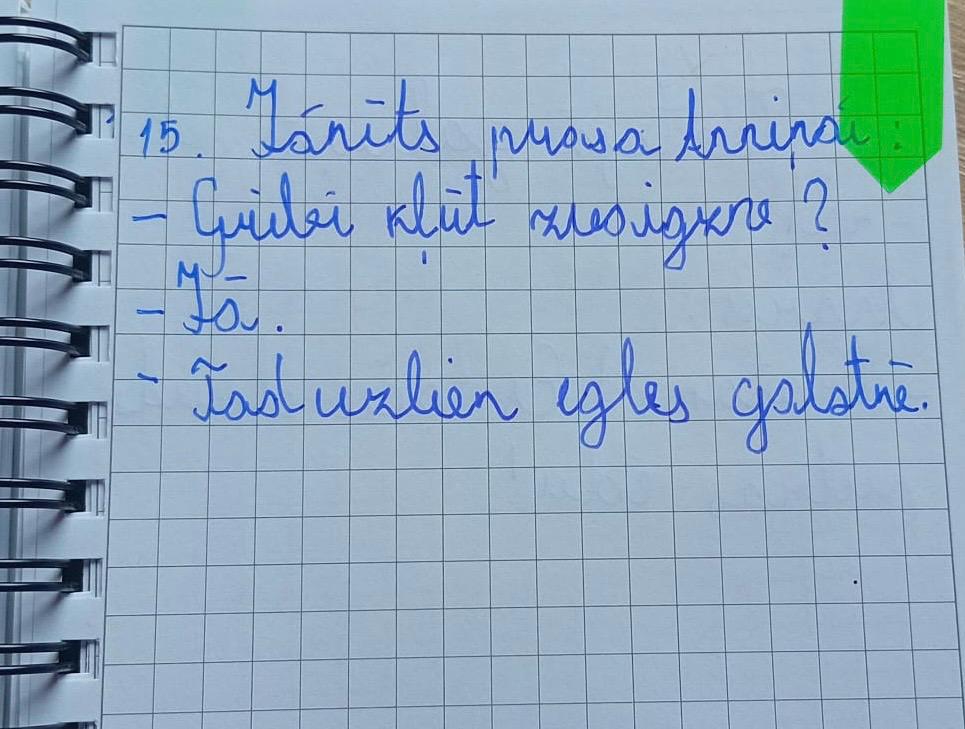 15. Jānīts prasa Anniņai:
- Gribi kļūt zvaigzne?
- Jā.
- Tad uzlien egles galotnē.